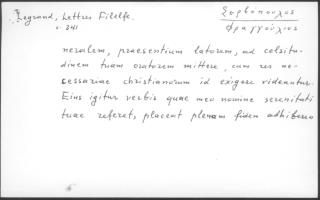 Legrand, Lettres Filelfe.
Σοφόπουλος
p. 341
Φραγγούλιος
neralem, praesentium latorem, ad celsitu-
dinem tuam oratorem mittere, cum res ne-
cessariae christianorum id exigere videantur.
Eius igitur verbis quae meo nomine serenitati
tuae referet, placeat plenam fidem adhibere